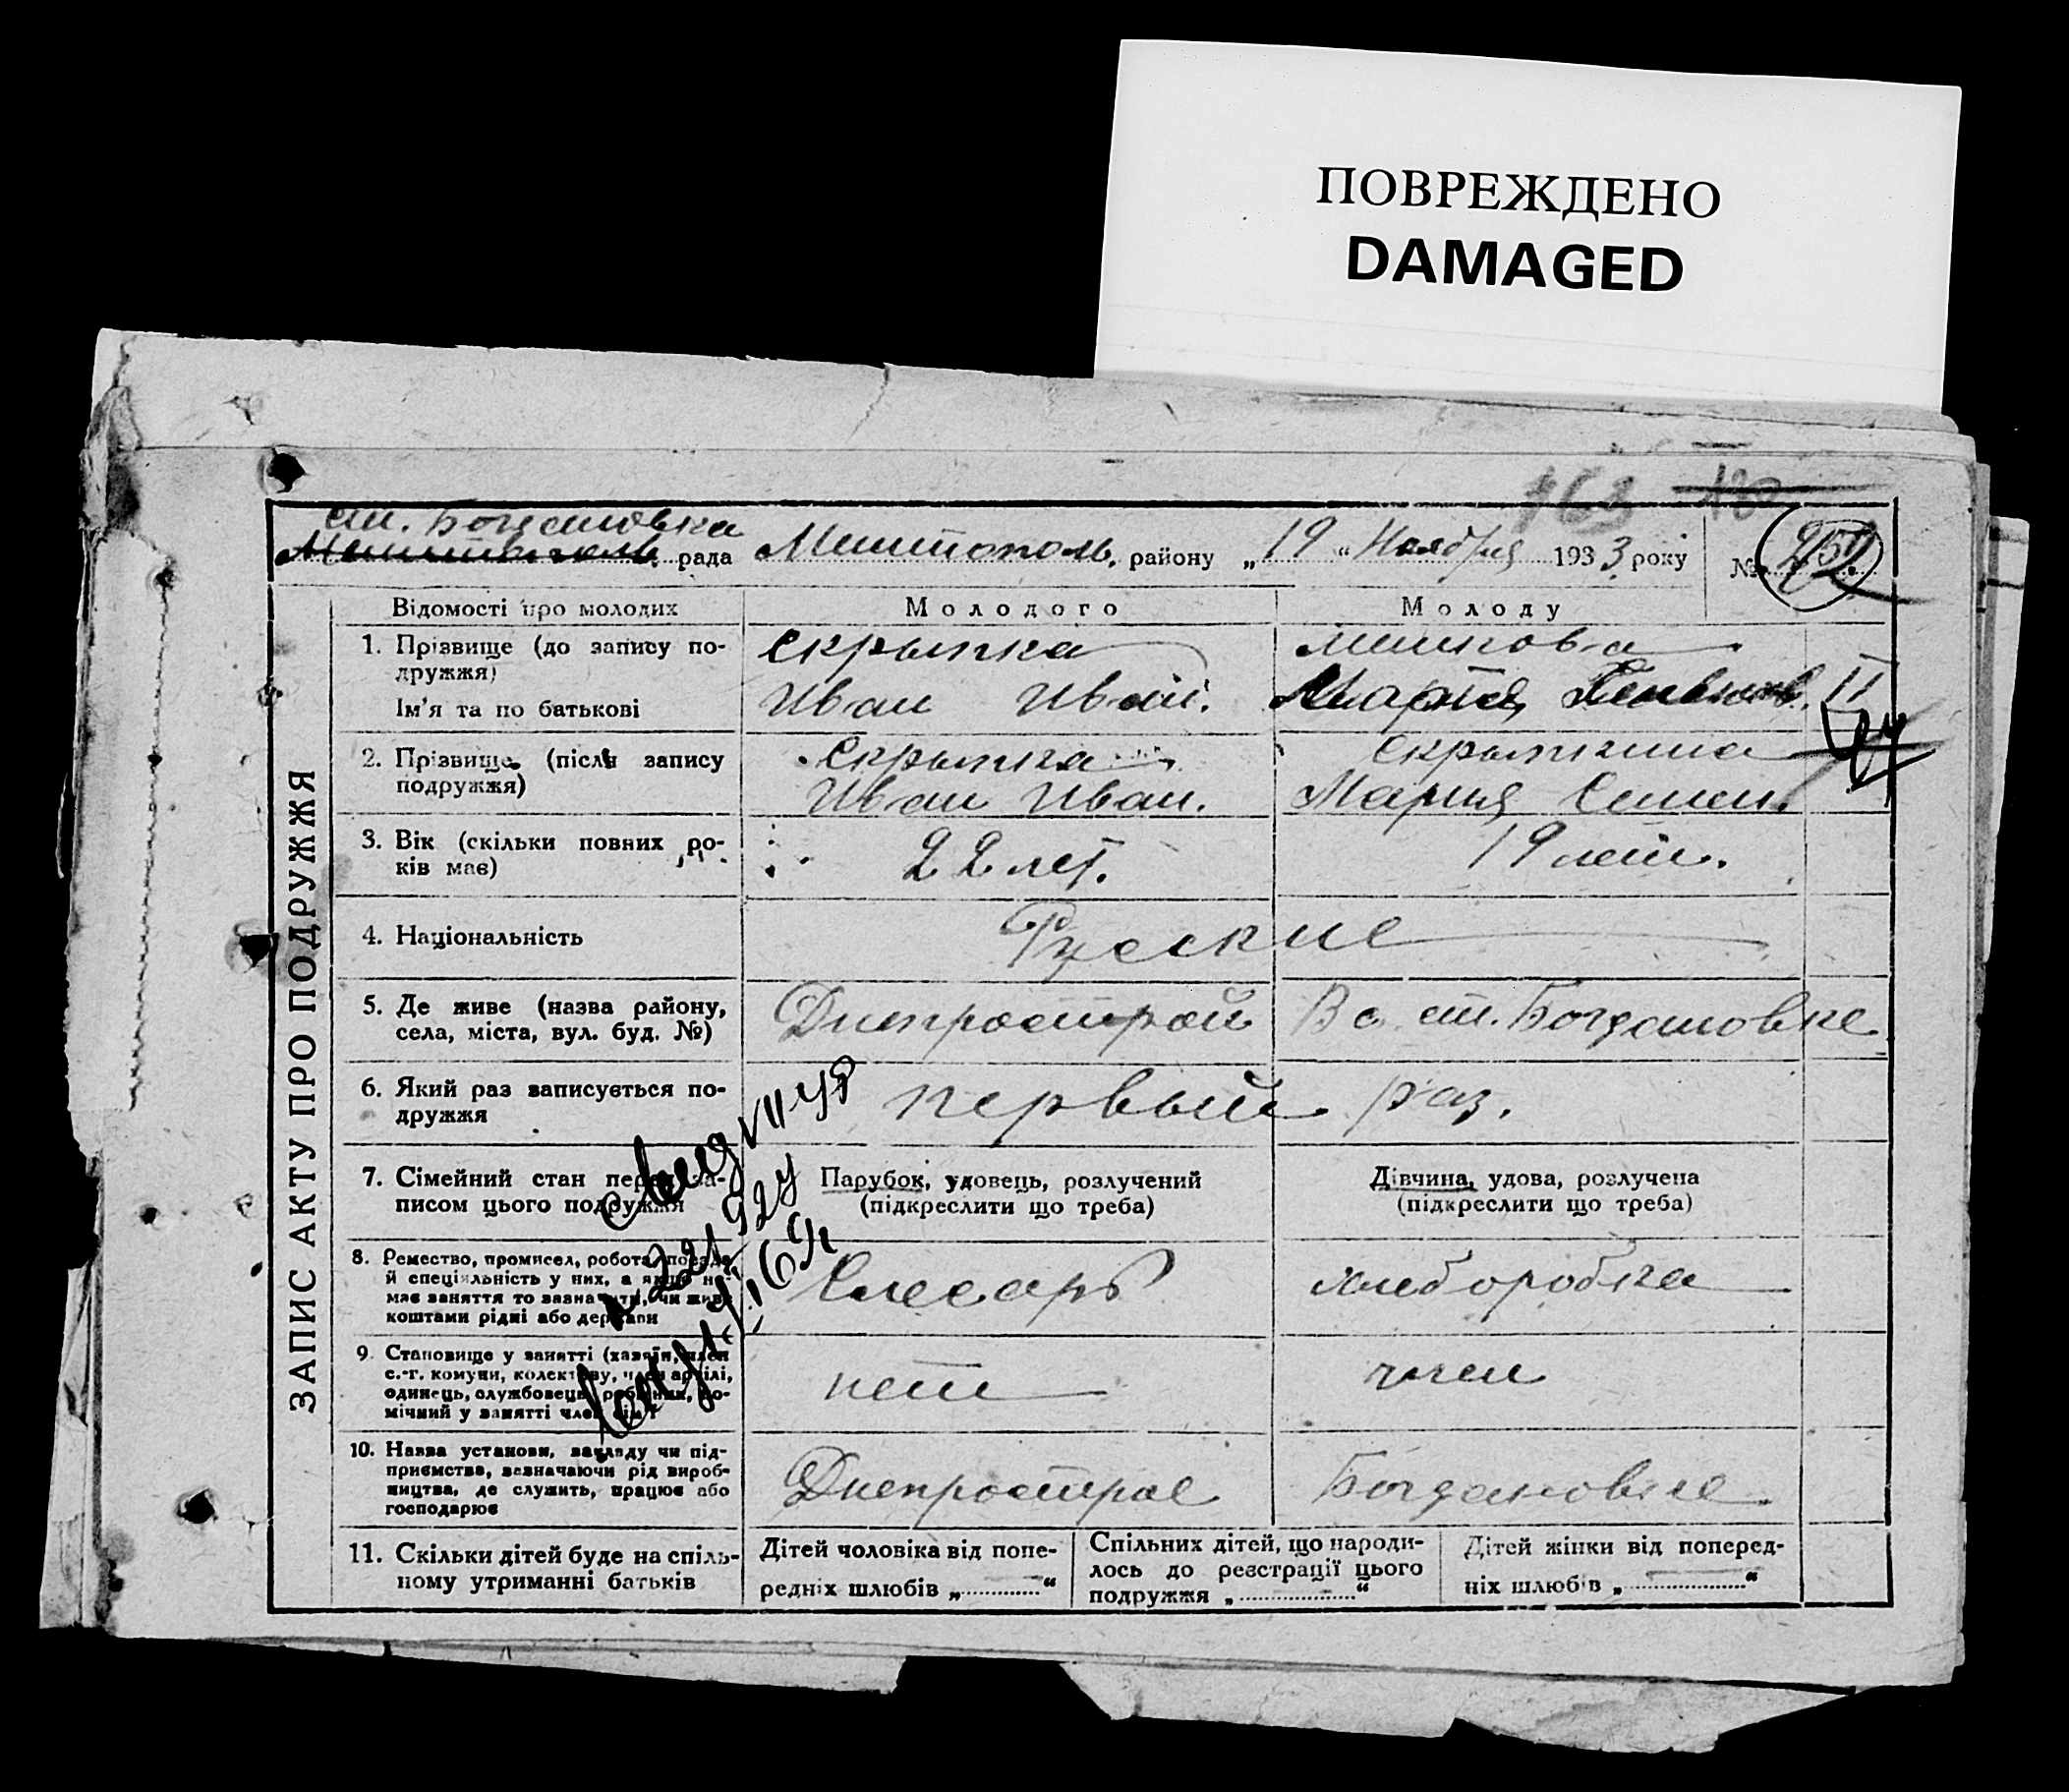 ПОВРЕЖДЕНО
DAMAGED
163
ст. Богдановка
рада Мелитополь, району „19“ Ноября 1933 року №
ЗАПИС АКТУ ПРО ПОДРУЖЖЯ
Відомості про молодих Молодого Молоду
1. Прізвище (до запису по-
дружжя)
Скрыпка
Ім'я та по батькові
Иван Иван.
2. Прізвище (після запису
подружжя)
Скрыпка Скрыпкина
Иван Иван. Мария Семен.
3. Вік (скільки повних ро-
ків має)
22 лет. 19 лет.
4. Національність
Русские
5. Де живе (назва району,
села, міста, вул. буд. №)
Днепрострой В с. ст. Богдановке
6. Який раз записується по-
дружжя
первый раз.
7. Сімейний стан перед за-
писом цього подружжя
Парубок, удовець, розлучений
(підкреслити що треба)
Дівчина, удова, розлучена
(підкреслити що треба)
8. Ремество, промисел, робота, посада
й спеціяльність у них, а якщо не-
має заняття то зазначити, чи живе
коштами рідні або держави
Слесарь хлеборобка
9. Становище у занятті (хазяїн, член
с.-г. комуни, колективу, член артілі,
одинець, службовець, робітник, по-
мічний у занятті член сім'ї
нет член
10. Назва установи, закладу чи під-
приємства, зазначаючи рід вироб-
ництва, де служить, працює або
господарює
Днепрострое Богдановке
11. Скільки дітей буде на спіль-
ному утриманні батьків
Дітей чоловіка від попе-
редніх шлюбів „..............“
Спільних дітей, що народи-
лось до реєстрації цього
подружжя „..............“
Дітей жінки від поперед-
ніх шлюбів „..............“